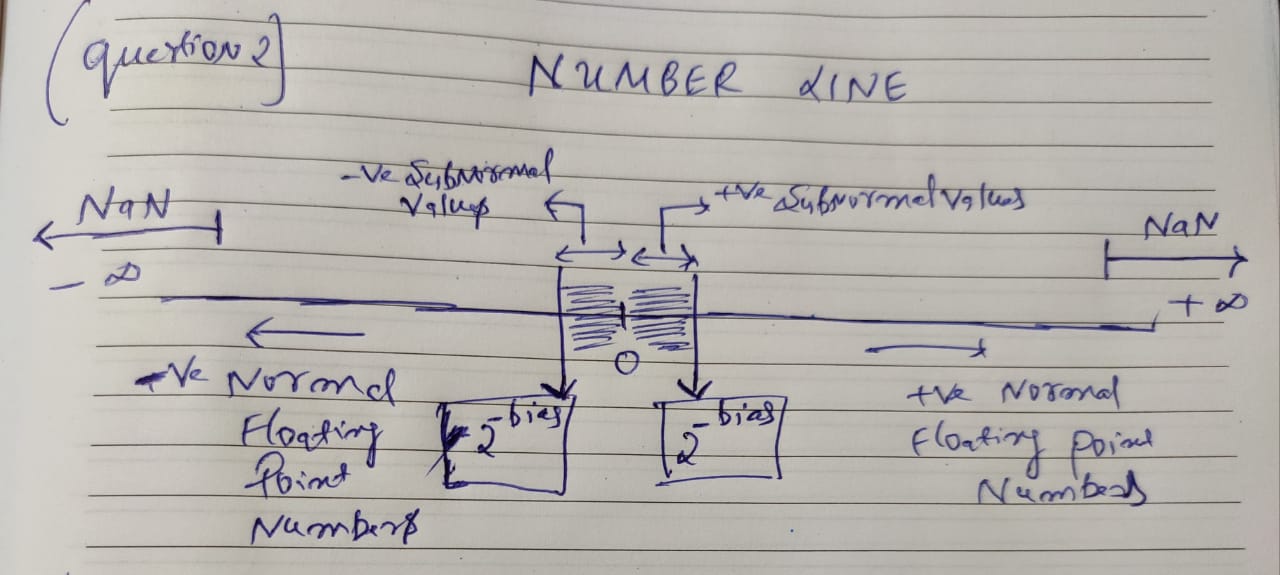 (Question 2]
NUMBER LINE
-Ve Subnormal
Values
+Ve Subnormal Values
NaN
NaN
- ∞
+ ∞
0
-Ve Normal
Floating
Point
Numbers
-2^-bias
2^-bias
+Ve Normal
Floating Point
Numbers